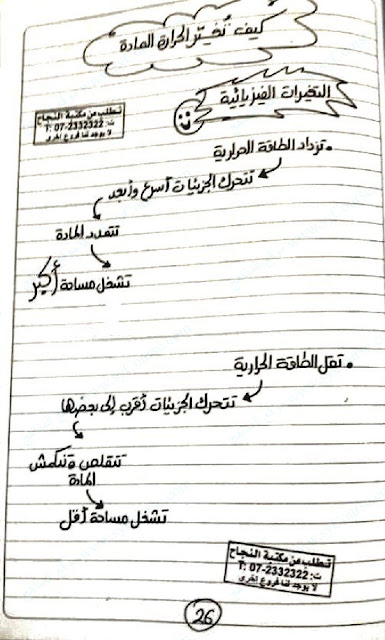 كيف تُغيّر الحرارة المادة
التغيرات الفيزيائية
تطلب من مكتبة النجاح
ت: 07-2332322 :T
لا يوجد لنا فروع اخرى
• تزداد الطاقة الحرارية
تتحرك الجزيئات أسرع وأبعد
تتمدد المادة
تشغل مساحة أكبر
• تقل الطاقة الحرارية
تتحرك الجزيئات أقرب إلى بعضها
تتقلص وتنكمش
المادة
تشغل مساحة أقل
تطلب من مكتبة النجاح
ت: 07-2332322 :T
لا يوجد لنا فروع اخرى
26